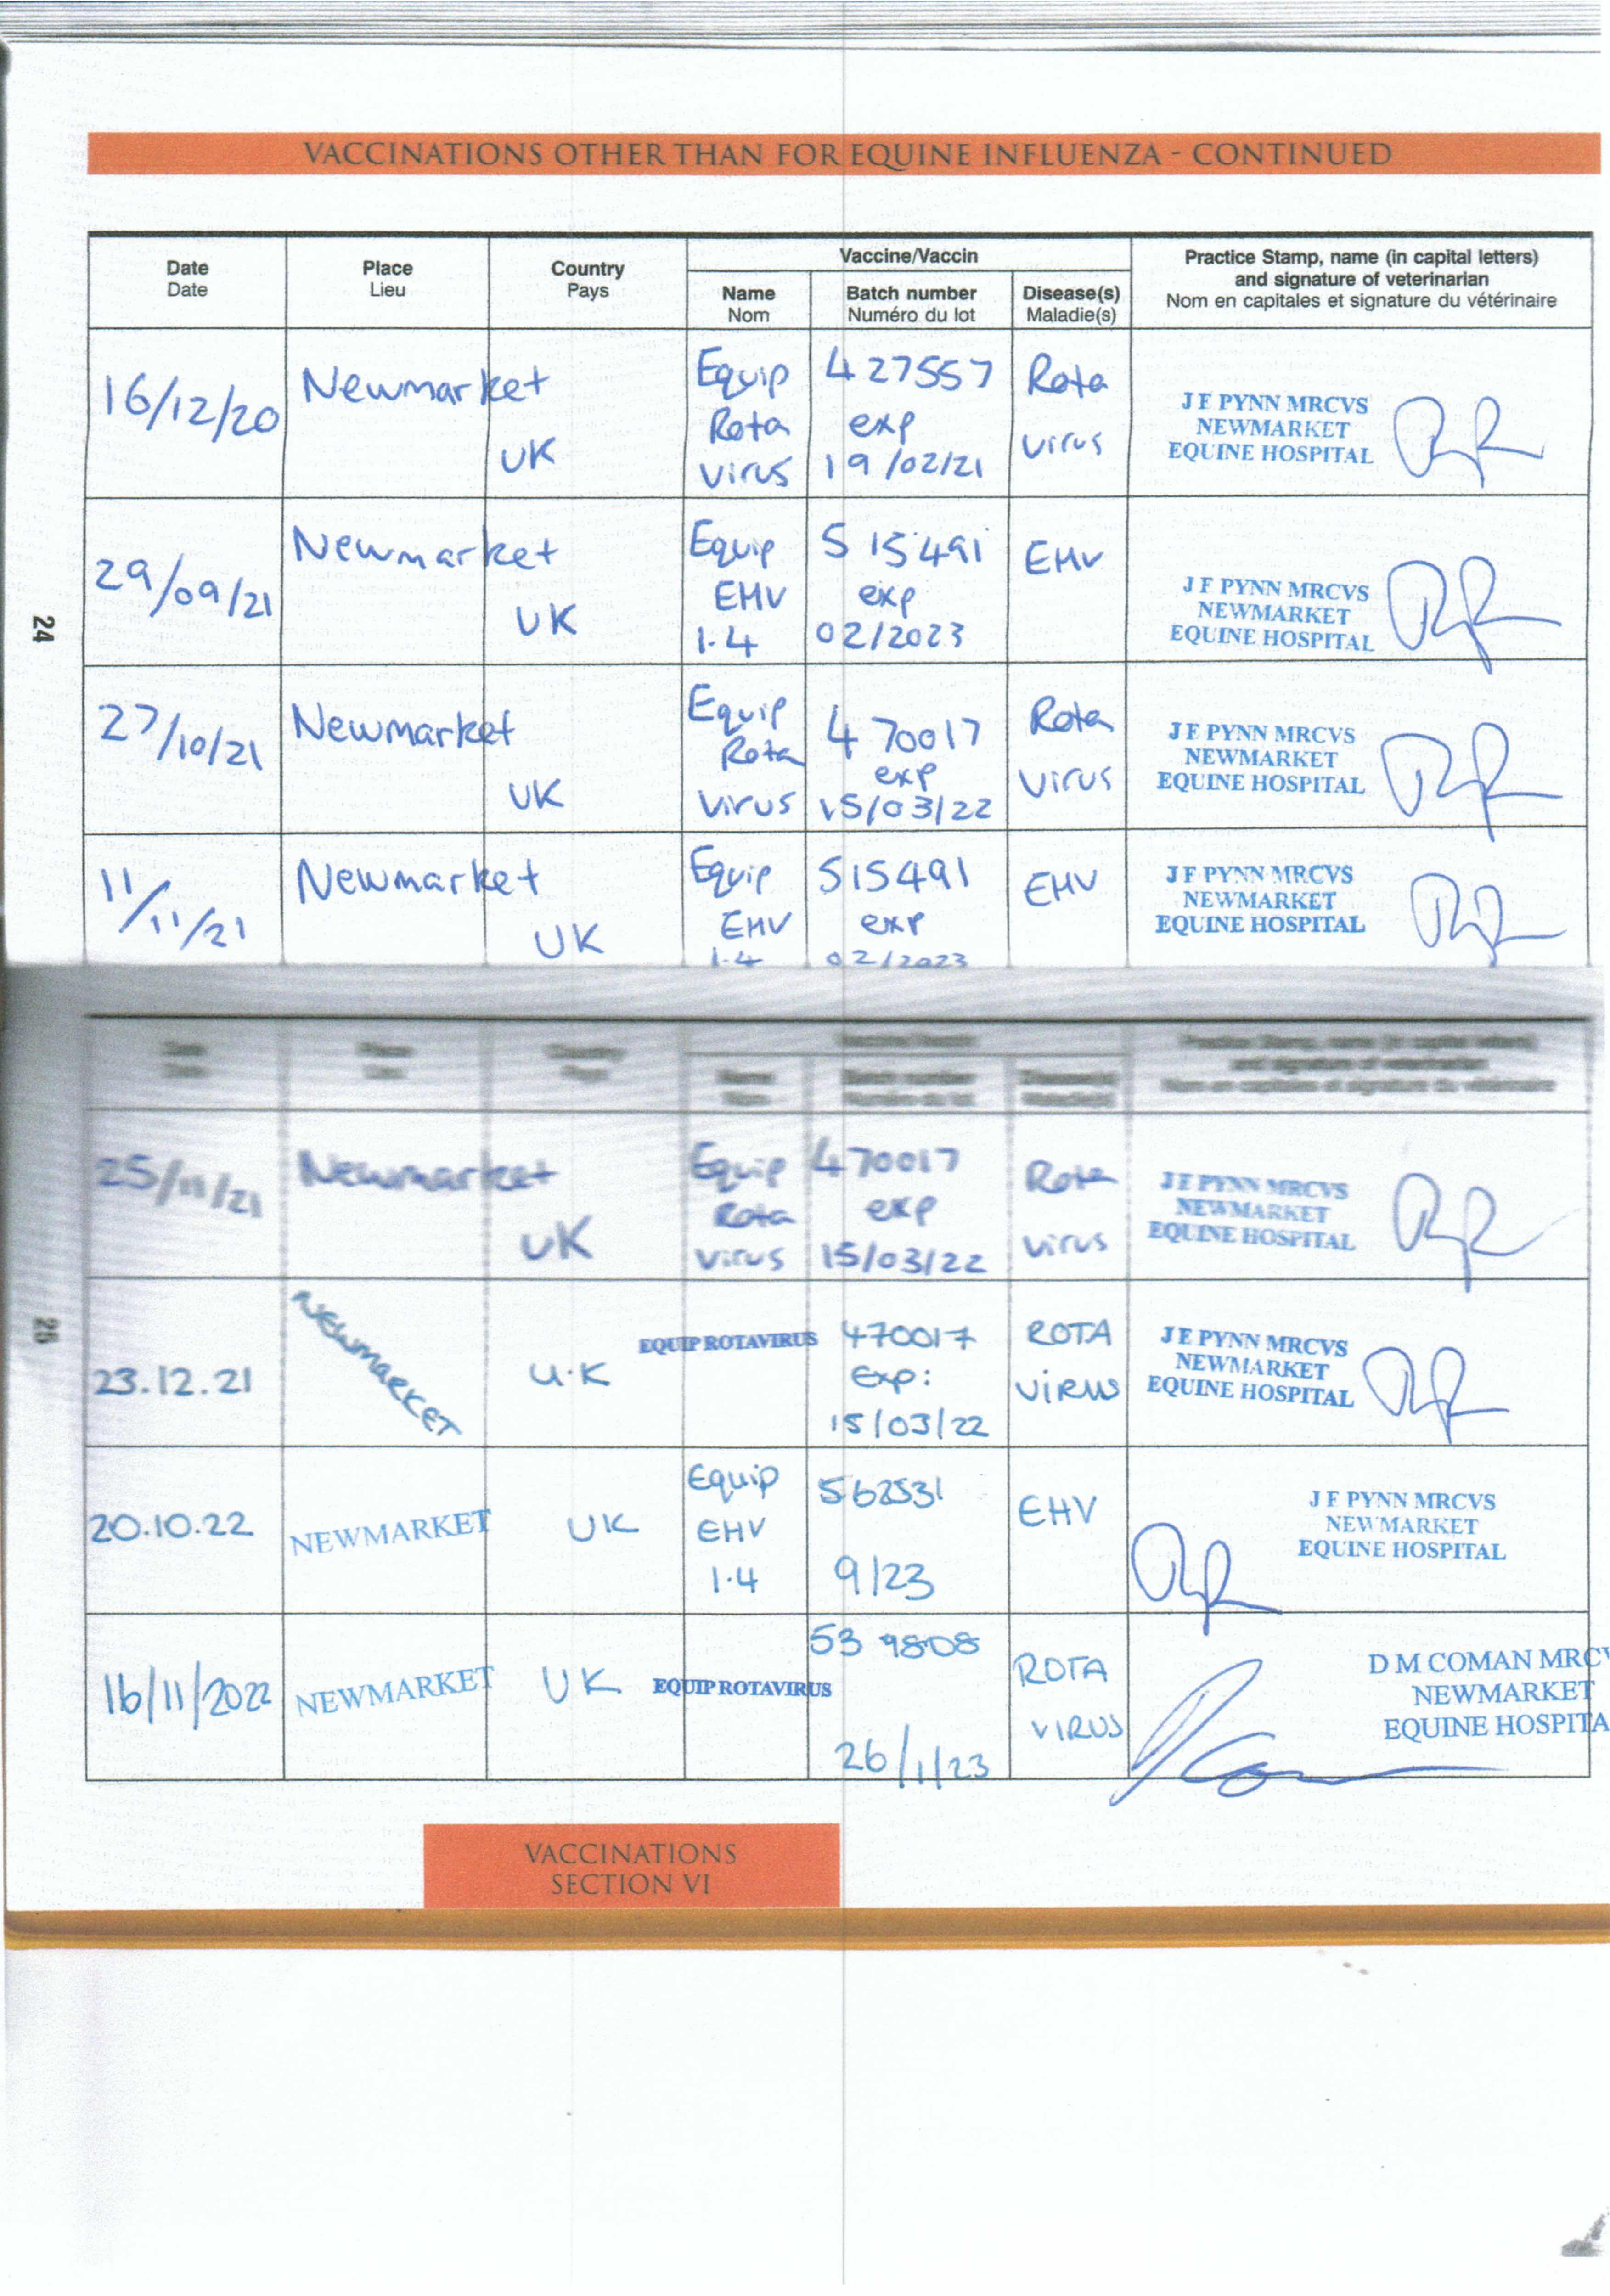 VACCINATIONS OTHER THAN FOR EQUINE INFLUENZA - CONTINUED
Date
Date
Place
Lieu
Country
Pays
Vaccine/Vaccin
Name
Nom
Batch number
Numéro du lot
Disease(s)
Maladie(s)
Practice Stamp, name (in capital letters)
and signature of veterinarian
Nom en capitales et signature du vétérinaire
16/12/20
Newmarket
UK
Equip
Rota
Virus
427557
exp
19/02/21
Rota
virus
J F PYNN MRCVS
NEWMARKET
EQUINE HOSPITAL
29/09/21
Newmarket
UK
Equip
EHV
1.4
515491
exp
02/2023
EHV
J F PYNN MRCVS
NEWMARKET
EQUINE HOSPITAL
24
27/10/21
Newmarket
UK
Equip
Rota
Virus
470017
exp
15/03/22
Rota
virus
J F PYNN MRCVS
NEWMARKET
EQUINE HOSPITAL
11/11/21
Newmarket
UK
Equip
EHV
1.4
515491
exp
02/2023
EHV
J F PYNN MRCVS
NEWMARKET
EQUINE HOSPITAL
Date
Date
Place
Lieu
Country
Pays
Vaccine/Vaccin
Name
Nom
Batch number
Numéro du lot
Disease(s)
Maladie(s)
Practice Stamp, name (in capital letters)
and signature of veterinarian
Nom en capitales et signature du vétérinaire
25/11/21
Newmarket
UK
Equip
Rota
Virus
470017
exp
15/03/22
Rota
virus
J F PYNN MRCVS
NEWMARKET
EQUINE HOSPITAL
25
23.12.21
NEWMARKET
U.K
EQUIP ROTAVIRUS
470017
Exp:
15/03/22
ROTA
VIRUS
J F PYNN MRCVS
NEWMARKET
EQUINE HOSPITAL
20.10.22
NEWMARKET
UK
Equip
EHV
1.4
562531
9/23
EHV
J F PYNN MRCVS
NEWMARKET
EQUINE HOSPITAL
16/11/2022
NEWMARKET
UK
EQUIP ROTAVIRUS
539808
26/1/23
ROTA
VIRUS
D M COMAN MRCV
NEWMARKET
EQUINE HOSPITA
VACCINATIONS
SECTION VI